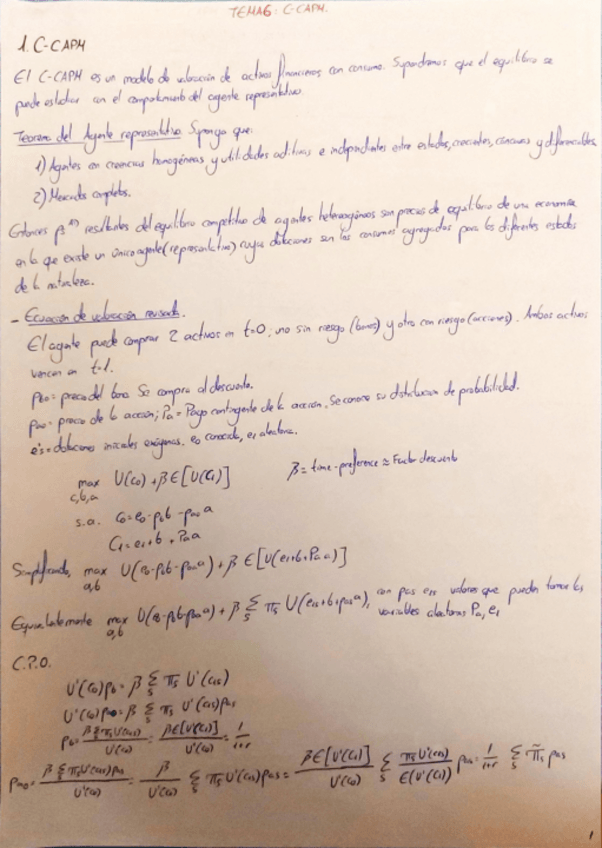 TEMA 6: C-CAPM.
1. C-CAPM
El C-CAPM es un modelo de valoración de activos financieros con consumo. Supondremos que el equilibrio se
puede estudiar con el comportamiento del agente representativo.
Teorema del Agente representativo. Suponga que:
1) Agentes con creencias homogéneas y utilidades aditivas e independientes entre estados, crecientes, cóncavas y diferenciables.
2) Mercados completos.
Entonces resultantes del equilibrio competitivo de agentes heterogéneos son precios de equilibrio de una economía
en la que existe un único agente (representativo) cuyas dotaciones son los consumos agregados para los diferentes estados
de la naturaleza.
- Ecuación de valoración revisada.
El agente puede comprar 2 activos en t=0: uno sin riesgo (bonos) y otro con riesgo (acciones). Ambos activos
vencen en t=1.
pb0 = precio del bono. Se compra al descuento.
pa0 = precio de la acción; Pa = Pago contingente de la acción. Se conoce su distribución de probabilidad.
e's = dotaciones iniciales exógenas. e0 conocido, e1 aleatoria.
max c,b,a U(c0) + βE[U(C1)] β = time-preference ≈ Factor descuento
s.a. c0 = e0 - pb b - pa0 a
C1 = e1 + b + Pa a
Simplificando, max a,b U(e0 - pb b - pa0 a) + β E[U(e1 + b + Pa a)]
Equivalentemente max a,b U(e0 - pb b - pa a) + β Σs πs U(e1s + b + pas a), con pas e1s valores que pueden tomar las
variables aleatorias Pa, e1
C.P.O.
U'(c0) pb = β Σs πs U'(c1s)
U'(c0) pa0 = β Σs πs U'(c1s) pas
pb = β Σs πs U'(c1s) / U'(c0) = βE[U'(C1)] / U'(c0) = 1/(1+r)
pa0 = β Σs πs U'(c1s) pas / U'(c0) = β / U'(c0) Σs πs U'(c1s) pas = βE[U'(C1)] / U'(c0) Σs πs U'(c1s) / E(U'(C1)) pas = 1/(1+r) Σs π̃s pas
1